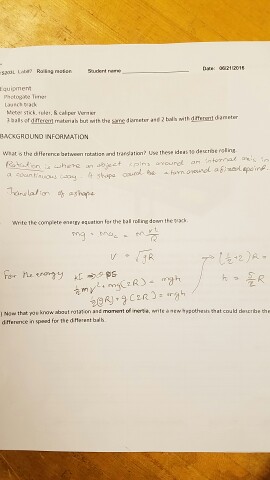 Lab#7 Rolling motion Student name Date: 06/21/2016
Equipment
Photogate Timer
Launch track
Meter stick, ruler, & caliper Vernier
3 balls of different materials but with the same diameter and 2 balls with different diameter
BACKGROUND INFORMATION
What is the difference between rotation and translation? Use these ideas to describe rolling.
Rotation is where an object spins around an internal axis in
a continuous way. A shape could be turn around a fixed point.
Translation of a shape
Write the complete energy equation for the ball rolling down the track.
mg = ma
v = √gR
For the energy
+ mg(2R) = mgh
½(gR) + g(2R) = mgh
(½+2)R =
h = 5/2 R
Now that you know about rotation and moment of inertia, write a new hypothesis that could describe the
difference in speed for the different balls.